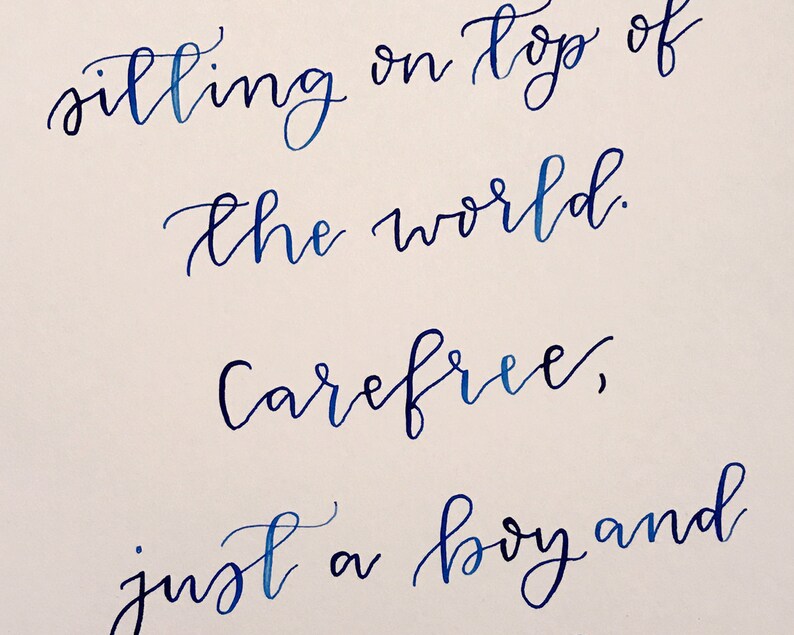 sitting on top of
the world.
Carefree,
just a boy and